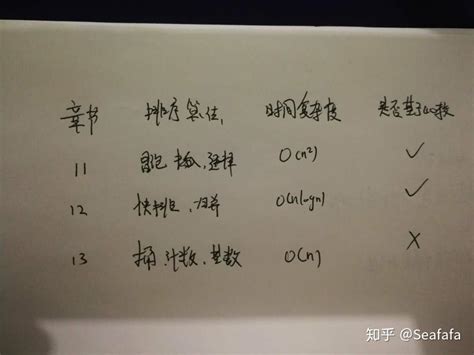 章节 排序算法 时间复杂度 是否基于比较
11 冒泡、插入、选择 O(n²) ✓
12 快排、归并 O(nlogn) ✓
13 桶、计数、基数 O(n) ✗
知乎 @Seafafa